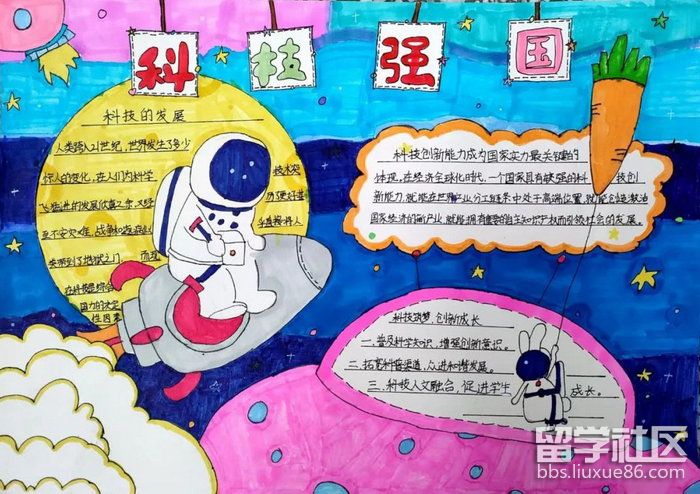 科技强国
科技的发展
人类跨入21世纪,世界发生了多少
惊人的变化,在人们为科学
技术突
飞猛进的发展欣喜之余,又经
科技创新能力成为国家实力最关键的
体现,在经济全球化时代,一个国家具有较强的科技创
新能力,就能在世界产业分工链条中处于高端位置,就能创造激活
国家经济的新产业,就能拥有重要的自主知识产权而引领社会的发展。
科技筑梦,创新成长
一、普及科学知识,增强创新意识。
二、拓宽科普渠道,众进和谐发展。
三、科技人文融合,促进学生成长。
在科技是综合
国力的决定
性因素
留学社区
bbs.liuxue86.com